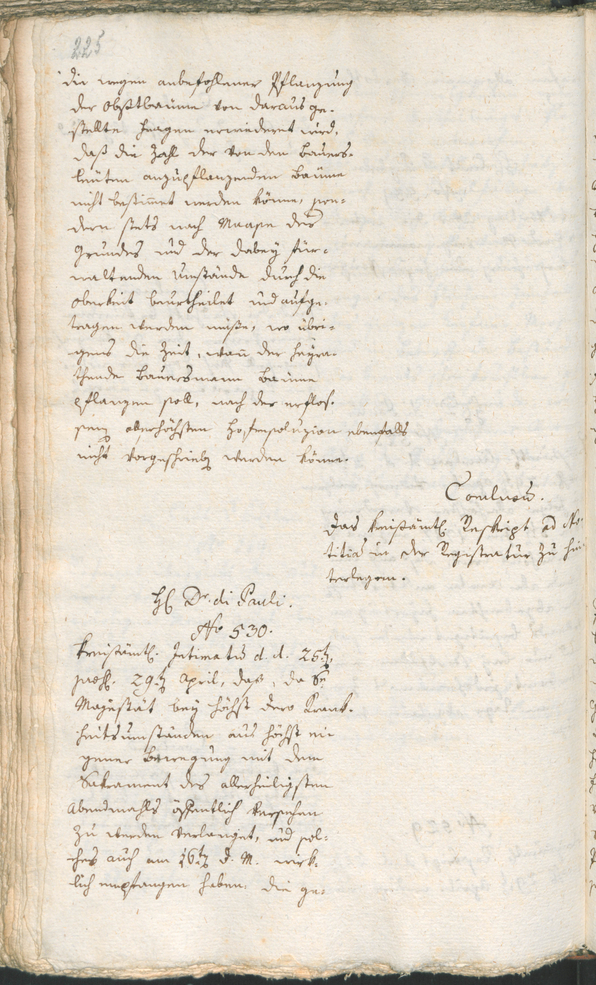 225
die wegen anbefohlener Pflanzung
der Obstbäume von daraus ge-
stellte fragen erwiederet wird,
daß die Zahl der von den Bauers-
leüten anzupflanzenden Bäume
nicht bestimet werden könne, son-
dern stets nach Maaße des
Grundes und der dabey für-
waltenden Umstände durch die
Oberkeit beurtheilet und aufge-
tragen werden müße, wo übri-
gens die Zeit, wann der heyra-
thende Bauersmann Bäume
pflanzen soll, nach der erflos-
senen allerhöchsten Hofresoluzion ebenfalls
nicht vorgeschrieben werden könne.
Conclusu.
das kreisämtl. Reskript ad No-
titia in der Registratur zu hin-
terlegen.
H. Dr. di Pauli.
No 530.
Kreisämtl. Intimatu d. d. 25t.
29t. April, daß, da Sr
Majestät bey höchst dero Krank-
heitsumständen aus höchst ei-
gener Bewegung mit dem
Sakrament des allerheiligsten
Abendmahls öffentlich versehen
zu werden verlanget, und sol-
ches auch am 16t d. M. wirk-
lich empfangen haben, die ge-